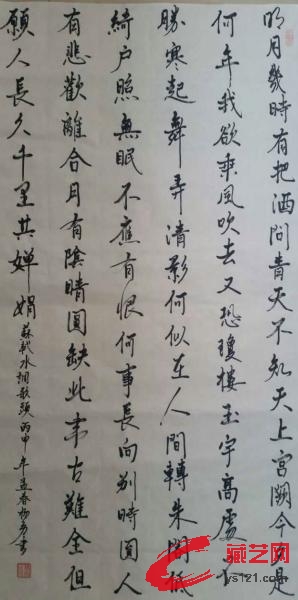 明月幾時有把酒問青天不知天上宮闕今夕是
何年我欲乘風吹去又恐瓊樓玉宇高處不
勝寒起舞弄清影何似在人間轉朱閣低
綺戶照無眠不應有恨何事長向別時圓人
有悲歡離合月有陰晴圓缺此事古難全但
願人長久千里共嬋娟
蘇軾水調歌頭丙申年孟春楊書
藏艺网
ys121.com